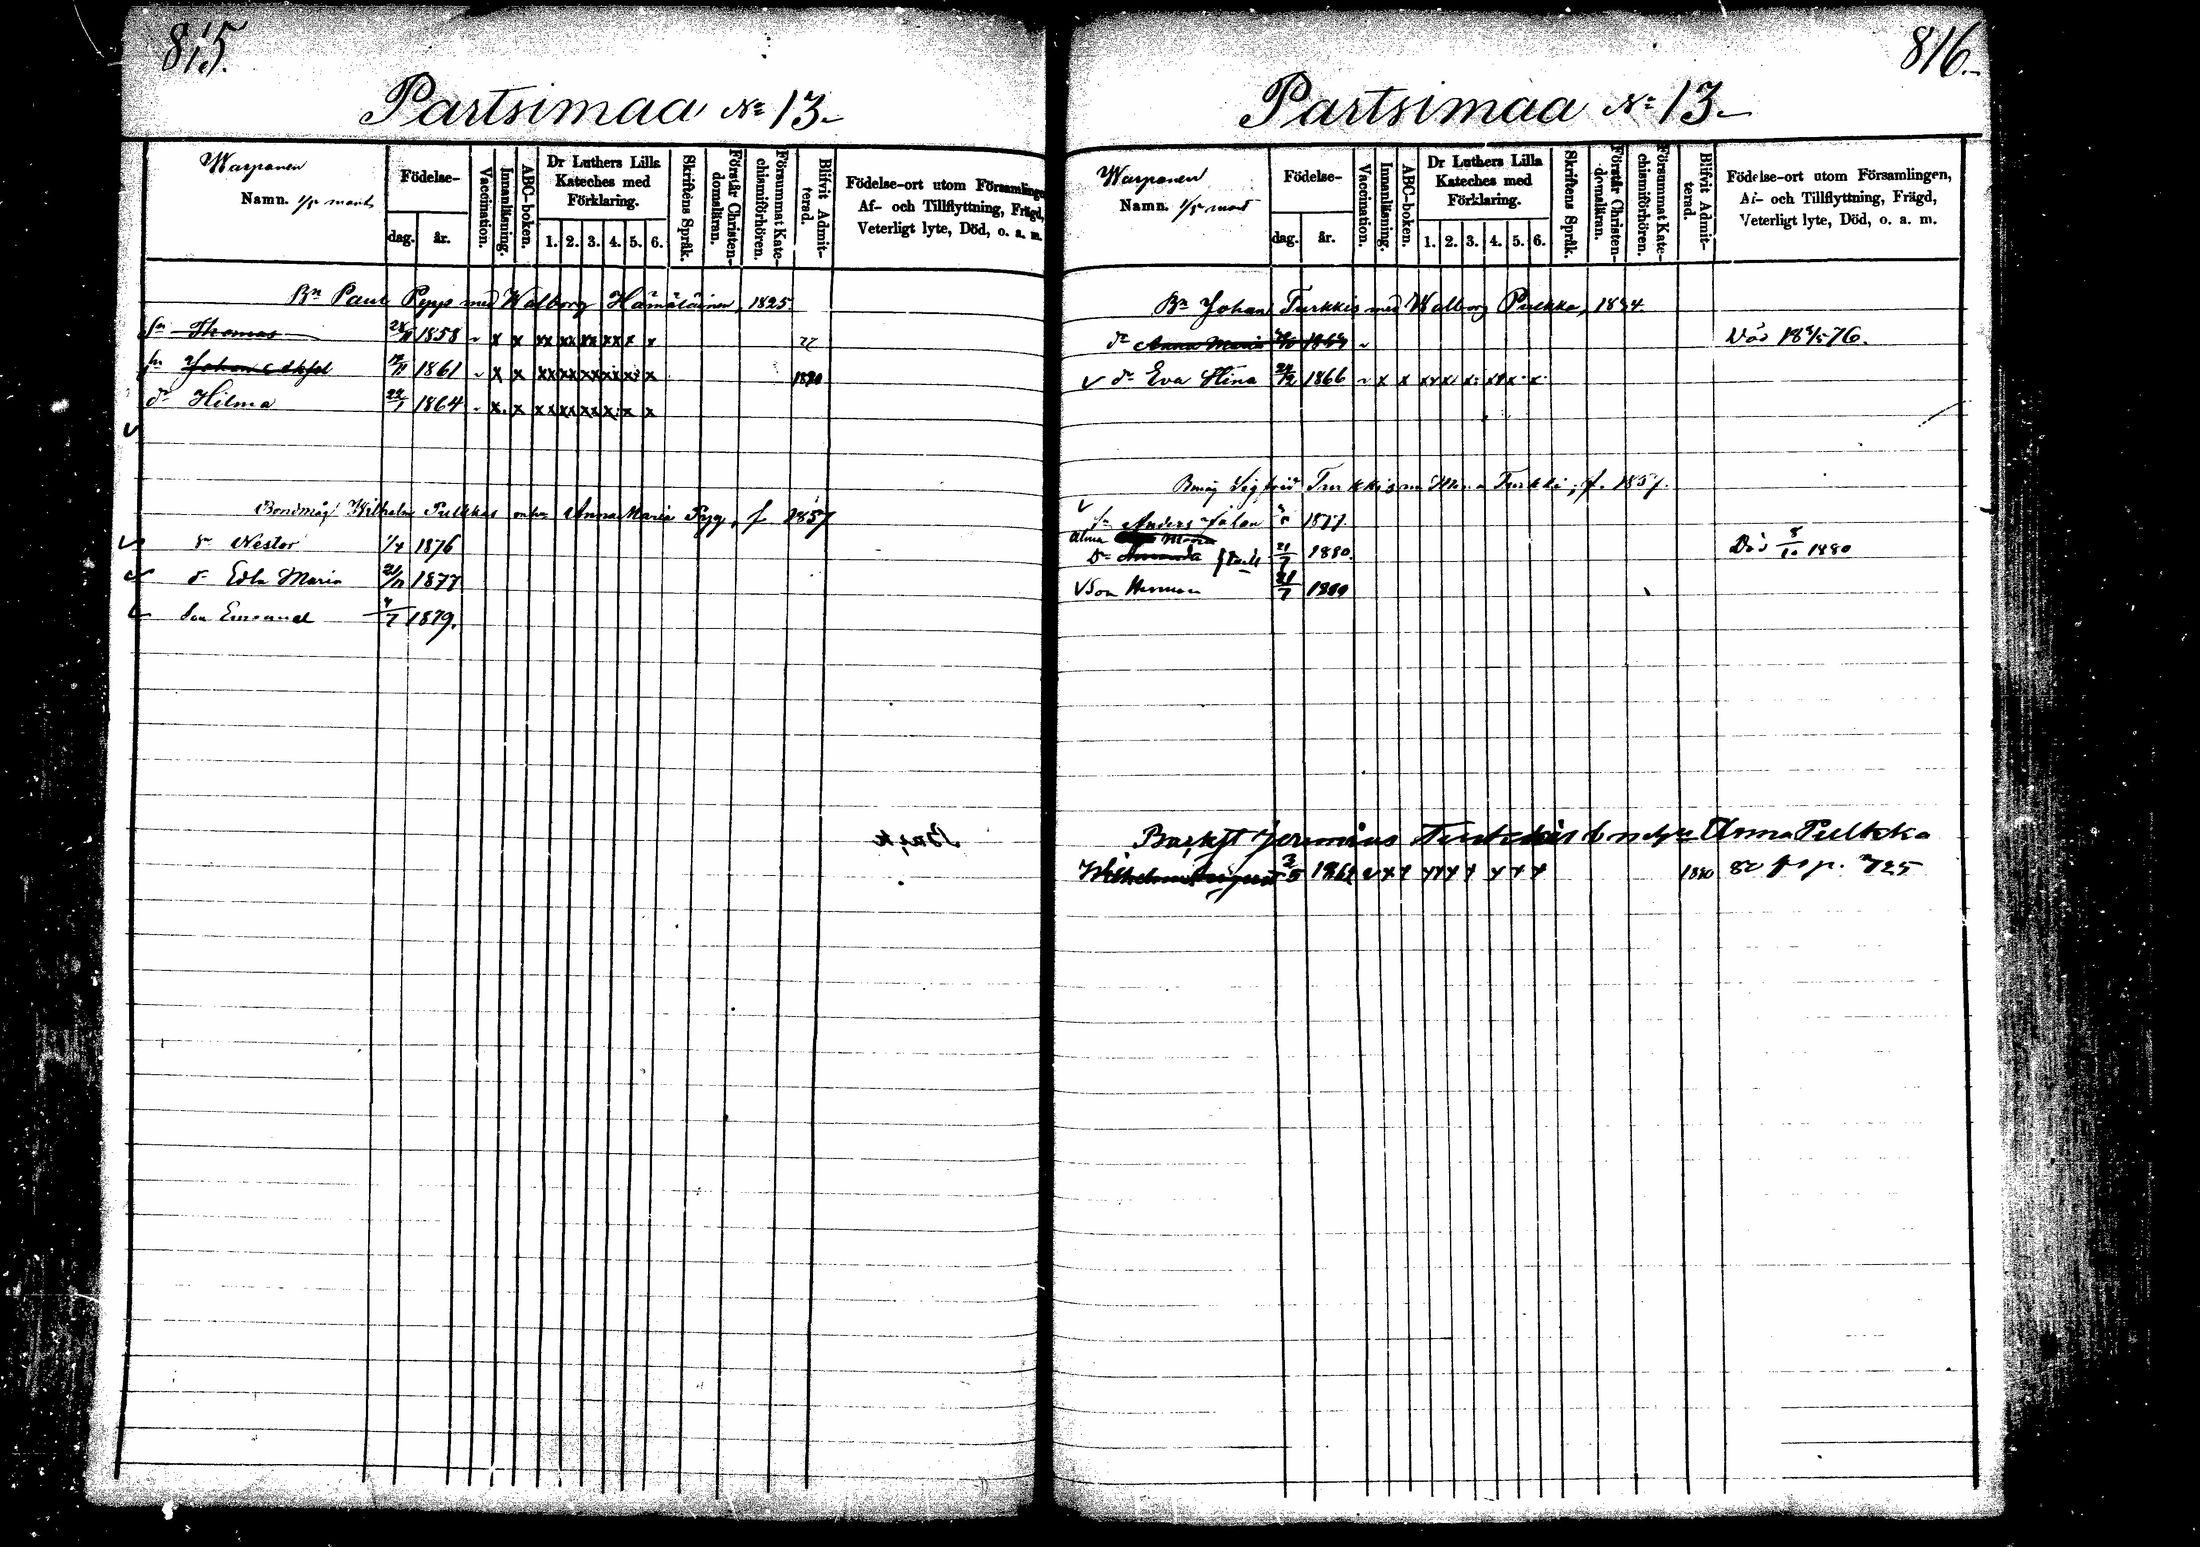 815.
Partsimaa No 13.
Warpanen
Namn. 1/5 mant.
Födelse-
dag. år.
Vaccination.
Innanläsning.
ABC-boken.
Dr Luthers Lilla Kateches med Förklaring.
1. 2. 3. 4. 5. 6.
Skriftens Språk.
Förstår Christendomsläran.
Försummat Katechismiförhören.
Blifvit Admitterad.
Födelse-ort utom Församlingen,
Af- och Tillflyttning, Frägd,
Veterligt lyte, Död, o. a. m.
Bn Paul Pyyp med Walborg Hämäläinen, 1825.
sn Thomas 1858 x x xx xx xx xx x x 77
sn Johan 1861 x x xx xx xx xx x x 1880
dr Hilma 22/1 1864 x x xx xx xx x x x
Bondmåg Wilhelm Pulkkas Anna Maria Pyyp, f 1857
Nestor 1/4 1876
d- Edla Maria 1877
Son Emanuel 4/7 1879.
816.
Partsimaa No 13.
Warpanen
Namn. 1/5 mant
Födelse-
dag. år.
Vaccination.
Innanläsning.
ABC-boken.
Dr Luthers Lilla Kateches med Förklaring.
1. 2. 3. 4. 5. 6.
Skriftens Språk.
Förstår Christendomsläran.
Försummat Katechismiförhören.
Blifvit Admitterad.
Födelse-ort utom Församlingen,
Af- och Tillflyttning, Frägd,
Veterligt lyte, Död, o. a. m.
Bn Johan Turkkis med Walborg Pulkka, 1834.
dr Anna Maria 1864 Död 18 5/5 76.
dr Eva Stina 1866 x x
Bmåg Sigfrid Turkkis Turkki, f. 1857.
sn Anders 1877.
Alma Maria
Dr Amanda 21/7 1880. Död 8/10 1880
Son Herman 21/7 1880
Jeremias Anna Pulkka
Wilhelm August 3/5 1862 1880